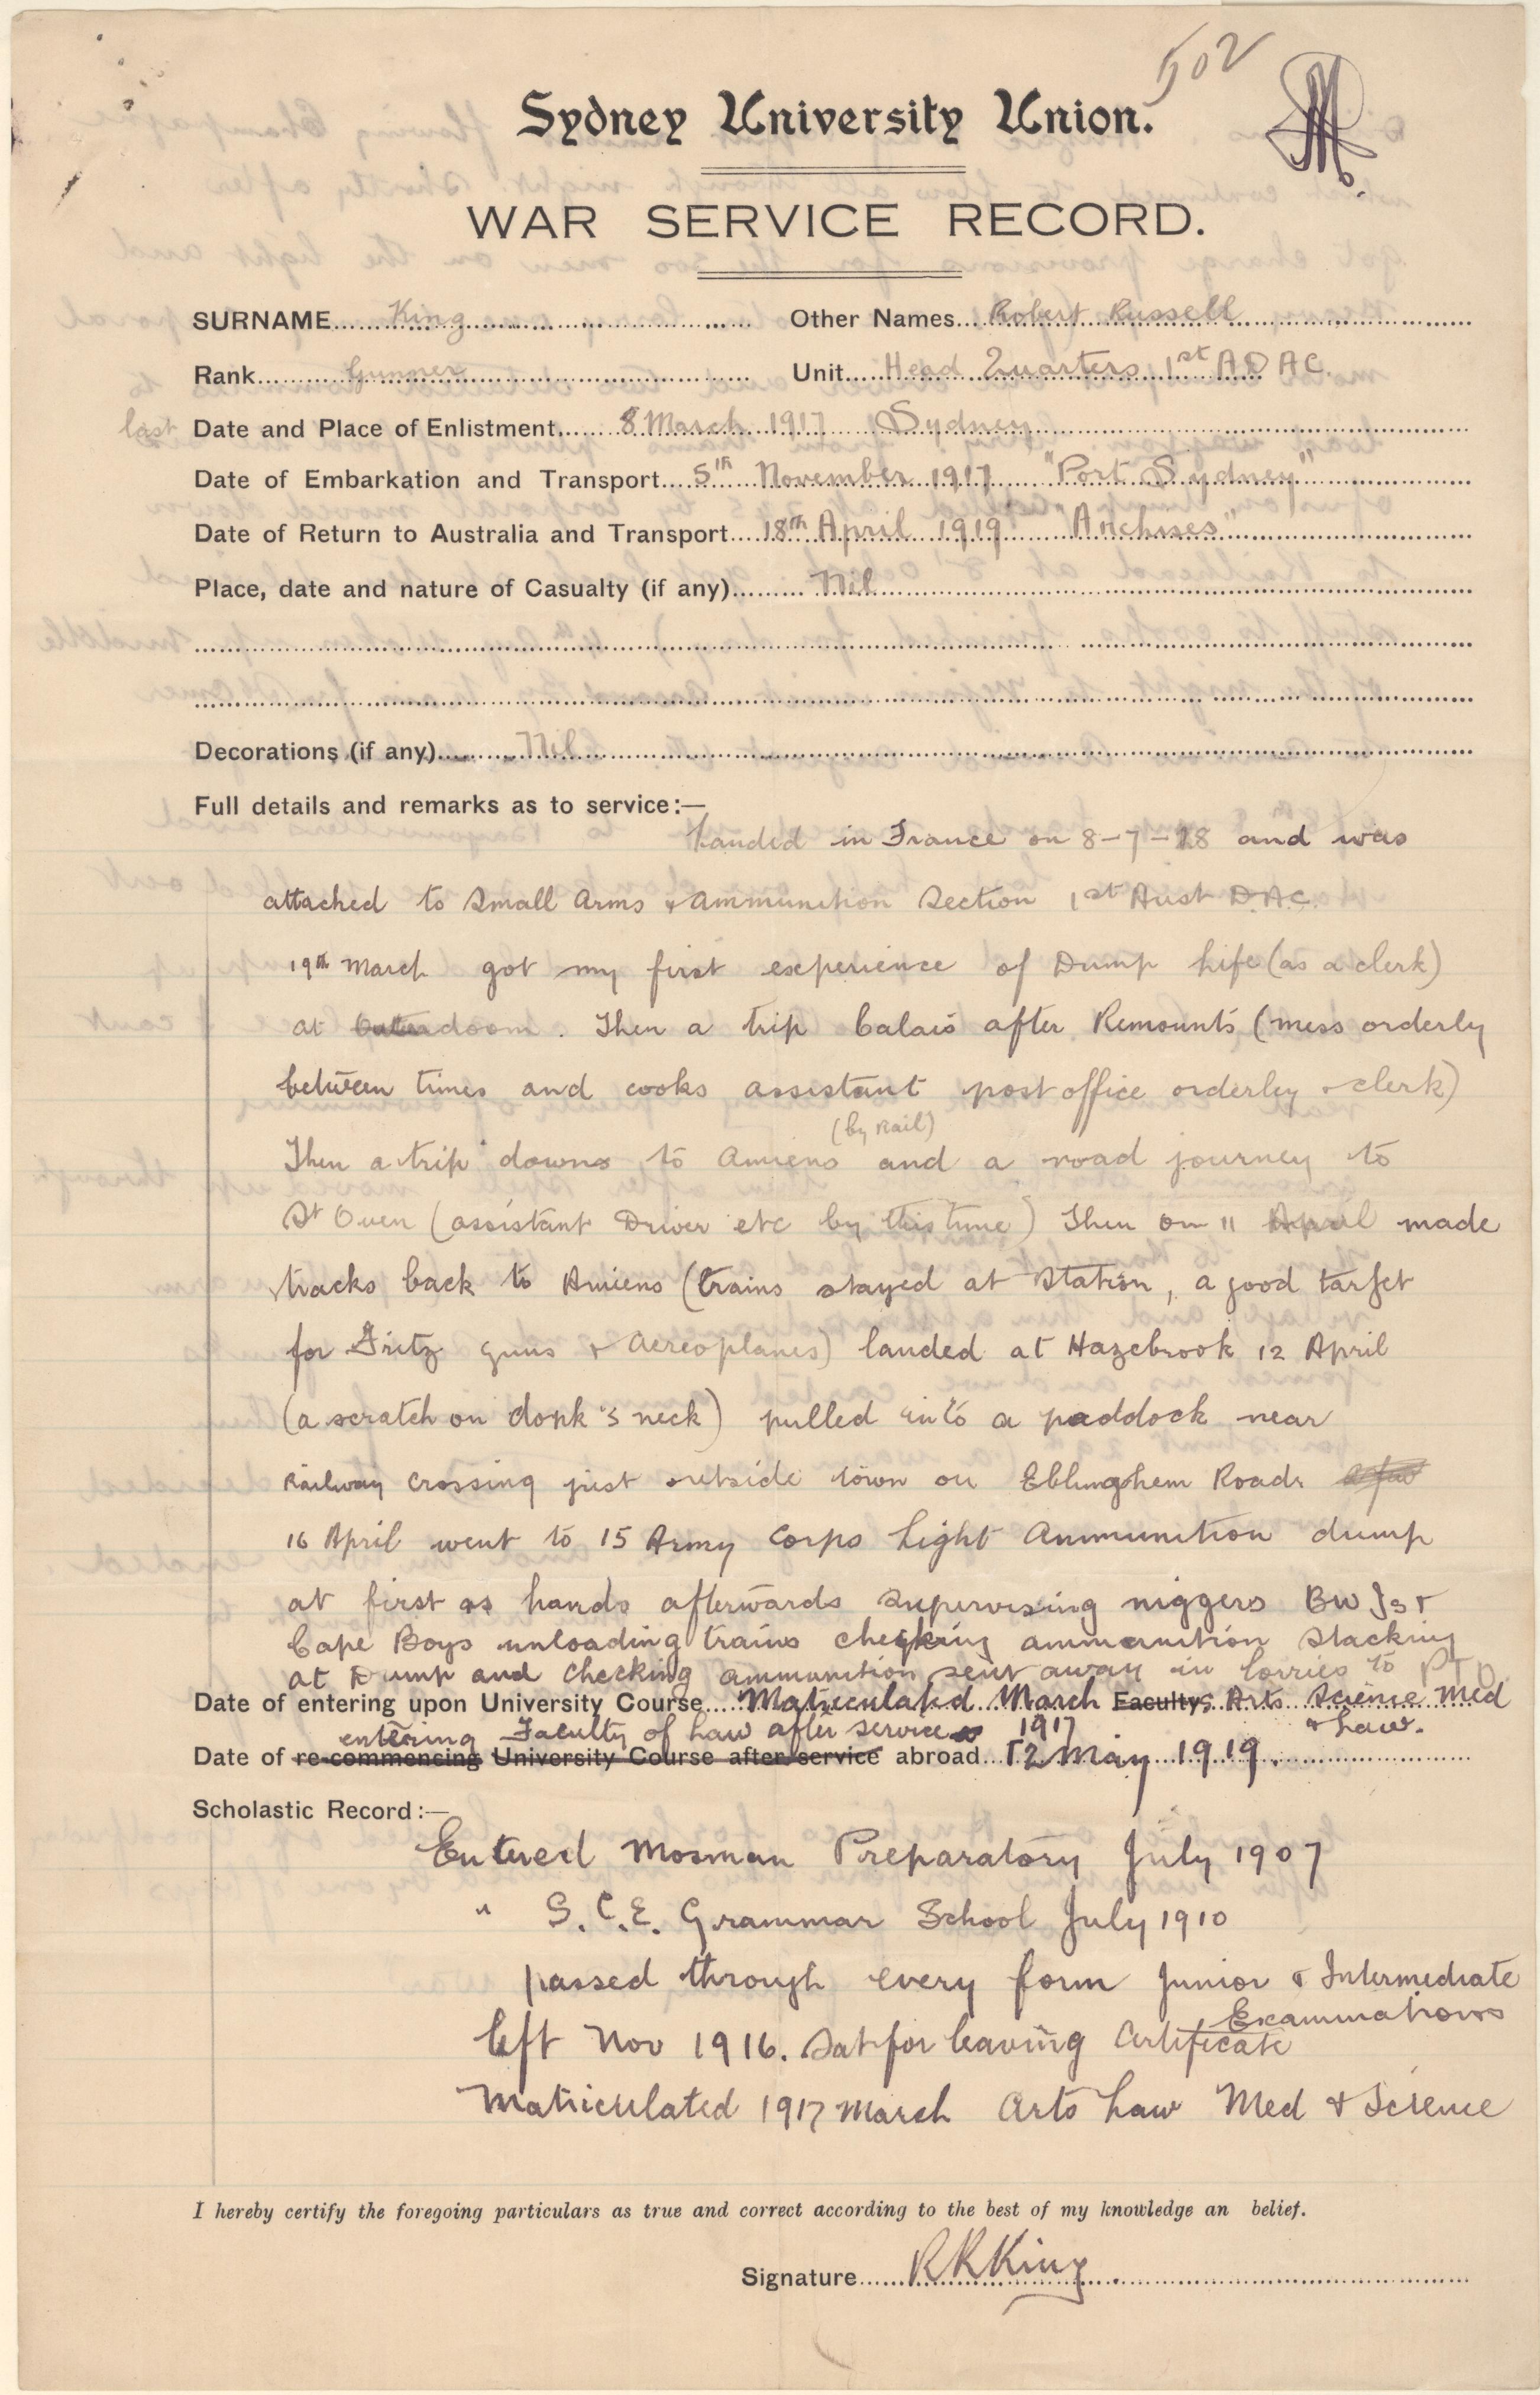 502
Sydney University Union.
WAR SERVICE RECORD.
SURNAME King Other Names Robert Russell
Rank Gunner Unit Head Quarters 1st A D A C.
last Date and Place of Enlistment 8 March 1917 Sydney
Date of Embarkation and Transport 5th November 1917 "Port Sydney"
Date of Return to Australia and Transport 18th April 1919 "Anchises"
Place, date and nature of Casualty (if any) Nil
Decorations (if any) Nil
Full details and remarks as to service:—
Landed in France on 8-7-18 and was
attached to Small Arms & Ammunition Section 1st Aust D.A.C.
19th March got my first experience of Dump Life (as a clerk)
at doom. Then a trip Calais after Remounts (mess orderly
between times and cooks assistant post office orderley & clerk)
(by Rail)
Then a trip down to Amiens and a road journey to
St Ouen (assistant Driver etc by this time) Then on 11 April made
tracks back to Amiens (trains stayed at Station, a good target
for Fritz guns & Aereoplanes) landed at Hazebrook 12 April
(a scratch on donk's neck) pulled into a paddock near
Railway crossing just outside town on Eblinghem Road
16 April went to 15 Army Corps Light Ammunition dump
at first as hands afterwards supervising niggers BWIs &
Cape Boys unloading trains checking ammunition stacking
at Dump and checking ammunition sent away in lorries to PTO.
Date of entering upon University Course Matriculated March Faculty Arts Science Med
entering Faculty of Law after service 1917 & Law.
Date of re-commencing University Course after service abroad 12 May 1919.
Scholastic Record:—
Entered Mosman Preparatory July 1907
" S.C.E. Grammar School July 1910
passed through every form Junior & Intermediate
Examinations
left Nov 1916. Sat for leaving Certificate
Matriculated 1917 March Arts Law Med & Science
I hereby certify the foregoing particulars as true and correct according to the best of my knowledge an belief.
Signature R R King